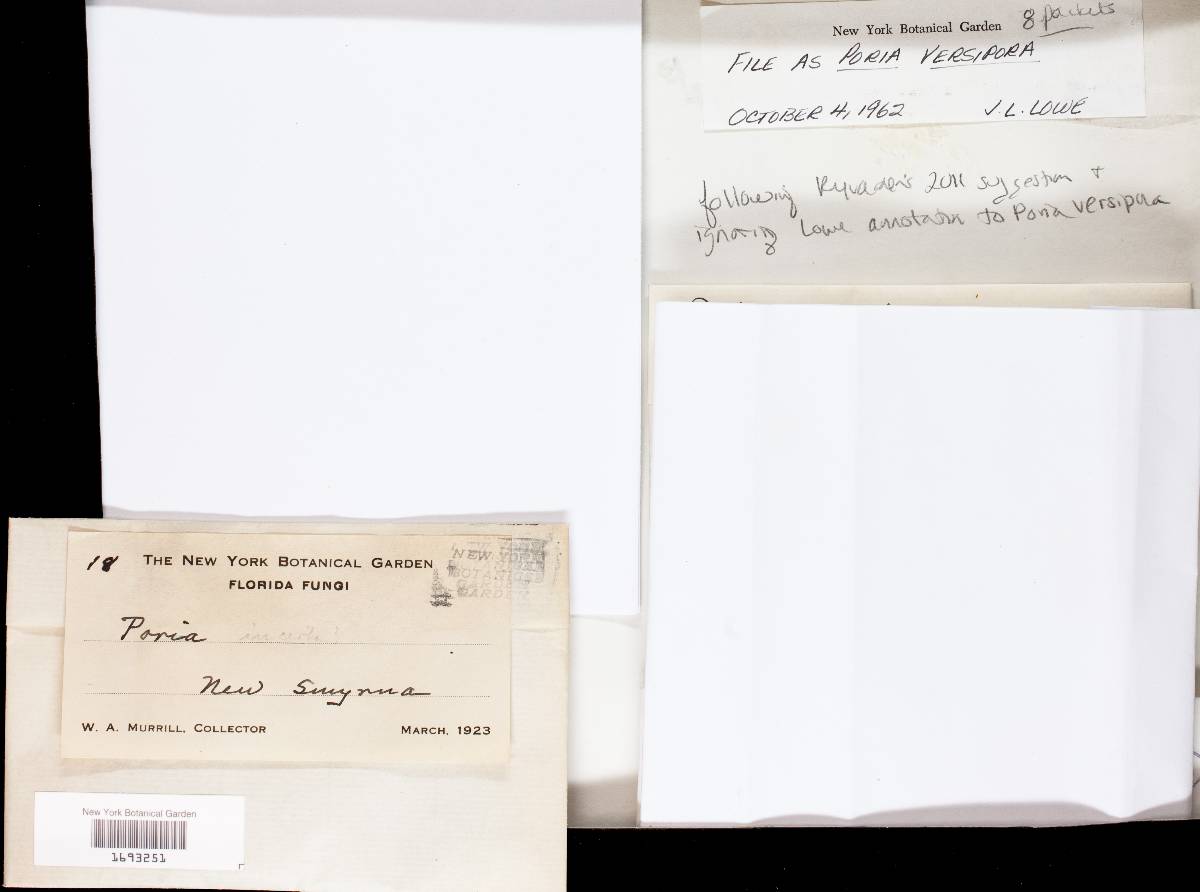 New York Botanical Garden 8 packets
FILE AS PORIA VERSIPORA
OCTOBER 4, 1962 J.L. LOWE
following Ryvarden's 2011 suggestion +
ignoring Lowe annotation to Poria versipora
18 THE NEW YORK BOTANICAL GARDEN
FLORIDA FUNGI
NEW YORK
BOTANICAL
GARDEN
Poria
New Smyrna
W. A. MURRILL, COLLECTOR MARCH, 1923
New York Botanical Garden
1693251